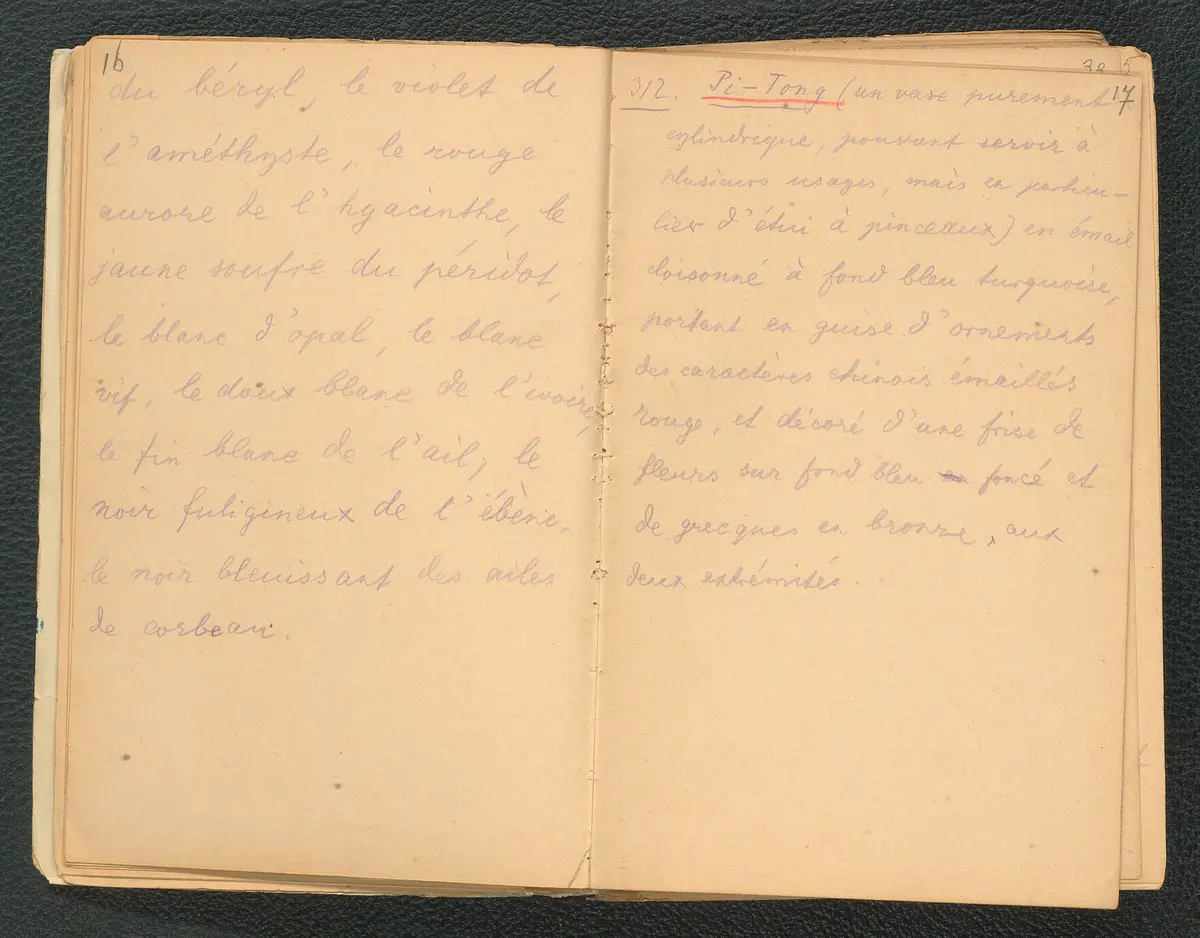 16
du béryl, le violet de
l'améthyste, le rouge
aurore de l'hyacinthe, le
jaune soufre du péridot,
le blanc d'opal, le blanc
vif, le doux blanc de l'ivoire,
le fin blanc de l'ail, le
noir fuligineux de l'ébène,
le noir bleuissant des ailes
de corbeau.
17
312. Pi-Tong (un vase purement
cylindrique, pouvant servir à
plusieurs usages, mais en particu-
lier d'étui à pinceaux) en émail
cloisonné à fond bleu turquoise,
portant en guise d'ornements
des caractères chinois émaillés
rouge, et décoré d'une frise de
fleurs sur fond bleu foncé et
de grecques en bronze, aux
deux extrémités.